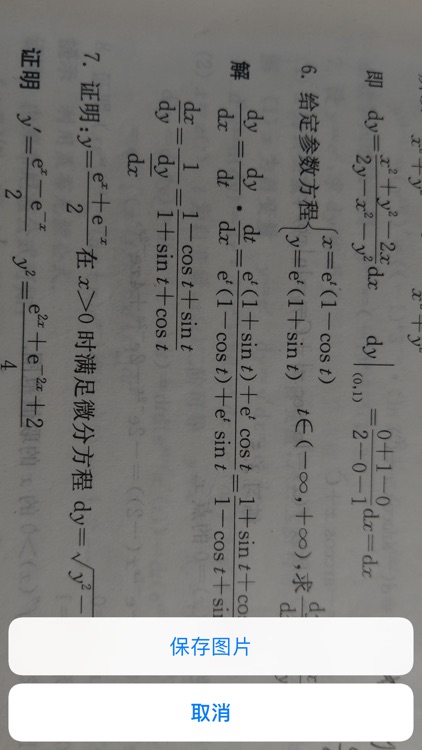 x²+y²
x²+y²
即 dy=\frac{x²+y²-2x}{2y-x²-y²}dx dy|_{(0,1)}=\frac{0+1-0}{2-0-1}dx=dx
6. 给定参数方程{x=e^t(1-cos t)
y=e^t(1+sin t) t∈(-∞,+∞),求
解 \frac{dy}{dx}=\frac{dy}{dt}·\frac{dt}{dx}=\frac{e^t(1+sin t)+e^t cos t}{e^t(1-cos t)+e^t sin t}=\frac{1+sin t+cos}{1-cos t+sin}
\frac{dx}{dy}=\frac{1}{\frac{dy}{dx}}=\frac{1-cos t+sin t}{1+sin t+cos t}
7. 证明:y=\frac{e^x+e^{-x}}{2}在 x>0 时满足微分方程 dy=√y²-
证明 y′=\frac{e^x-e^{-x}}{2} y²=\frac{e^{2x}+e^{-2x}+2}{4}
保存图片
取消